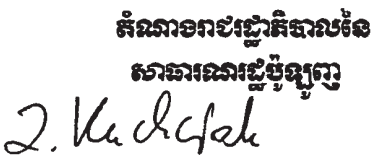 តំណាងរាជរដ្ឋាភិបាលនៃ
សាធារណរដ្ឋប៉ូឡូញ